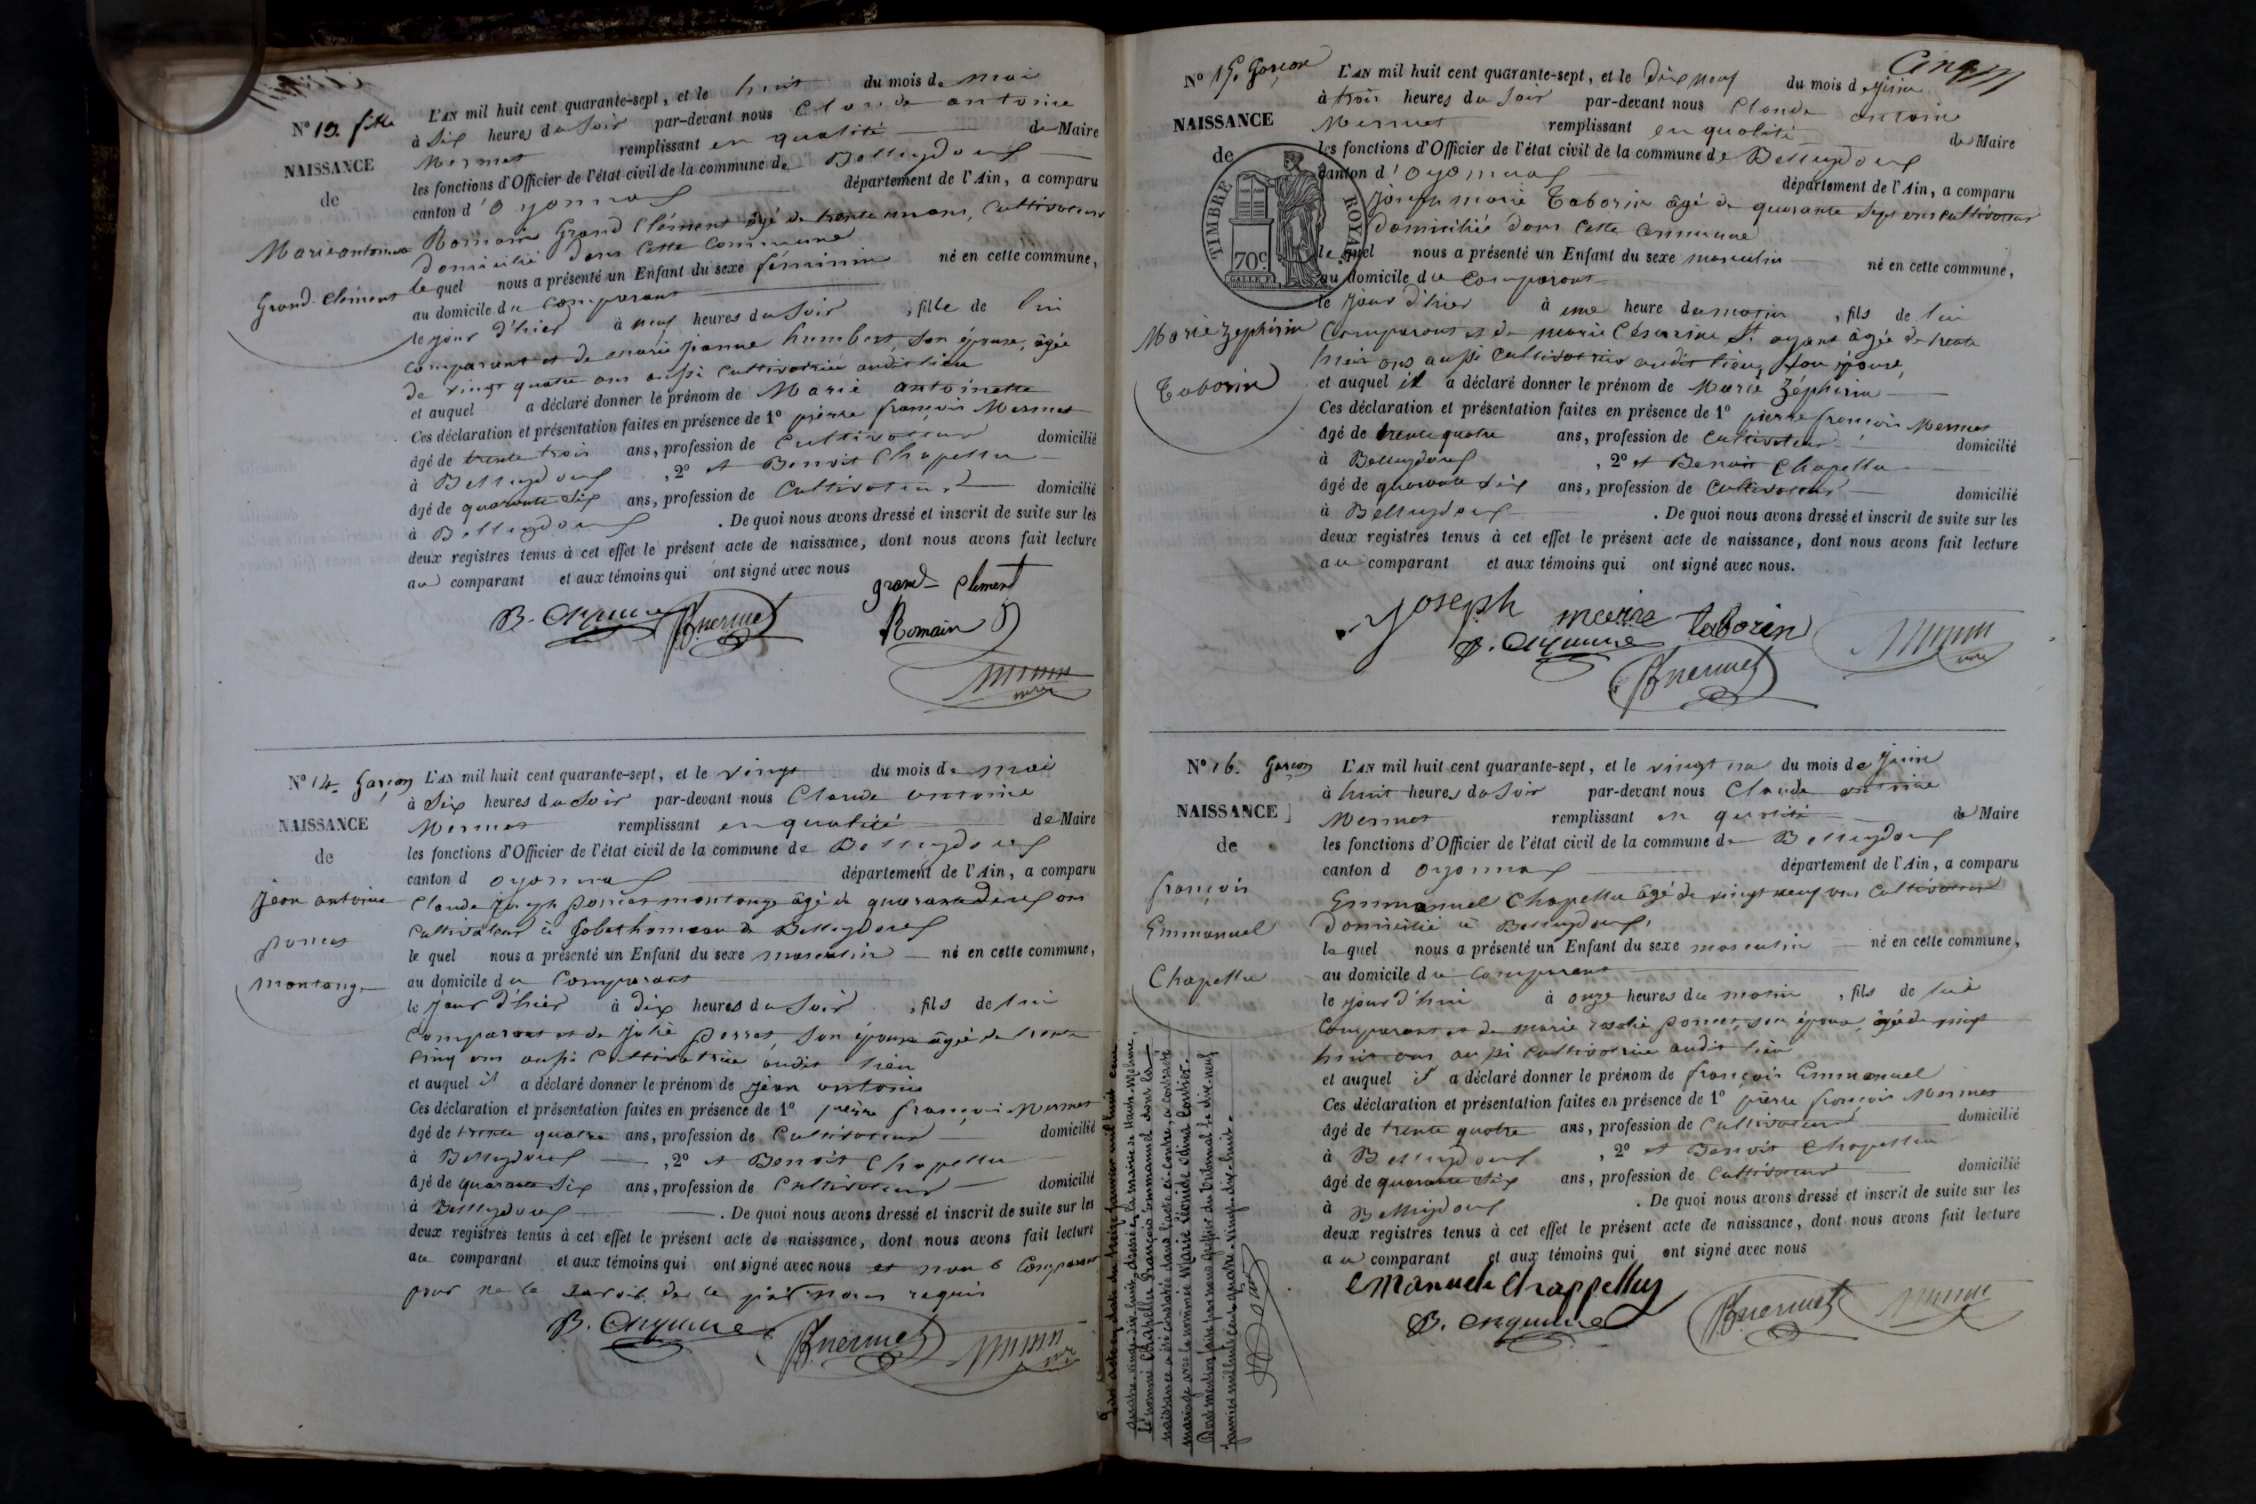 N° 13. fille
NAISSANCE
de
Marie antoinette
Grand-Clément
L'AN mil huit cent quarante-sept, et le huit du mois de mai
à six heures du soir par-devant nous Claude antoine
Mermet remplissant en qualité de Maire
les fonctions d'Officier de l'état civil de la commune de Belleydoux
canton d'Oyonnax département de l'Ain, a comparu
Romain Grand Clément âgé de trente un ans, Cultivateur
domicilié dans cette commune
lequel nous a présenté un Enfant du sexe féminin né en cette commune,
au domicile du comparant
le jour d'hier à neuf heures du soir, fille de lui
comparant et de marie jeanne humbert, son épouse, âgée
de vingt quatre ans aussi cultivatrice audit lieu
et auquel a déclaré donner le prénom de Marie antoinette
Ces déclaration et présentation faites en présence de 1° pierre françois Mermet
âgé de trente trois ans, profession de Cultivateur domicilié
à Belleydoux, 2° et Benoit Chapellu
âgé de quarante six ans, profession de Cultivateur domicilié
à Belleydoux. De quoi nous avons dressé et inscrit de suite sur les
deux registres tenus à cet effet le présent acte de naissance, dont nous avons fait lecture
au comparant et aux témoins qui ont signé avec nous
grand-Clement
Romain
N° 14. Garçon
NAISSANCE
de
jean antoine
poncet
montange
L'AN mil huit cent quarante-sept, et le vingt du mois de mai
à six heures du soir par-devant nous Claude antoine
Mermet remplissant en qualité de Maire
les fonctions d'Officier de l'état civil de la commune de Belleydoux
canton d oyonnax département de l'Ain, a comparu
Claude joseph poncet montange âgé de quarante deux ans
cultivateur à Gobet hameau de Belleydoux
le quel nous a présenté un Enfant du sexe masculin né en cette commune,
au domicile du Comparant
le jour d'hier à dix heures du soir, fils de lui
Comparant et de julie perret, son épouse âgée de trente
cinq ans aussi Cultivatrice audit lieu
et auquel il a déclaré donner le prénom de jean antoine
Ces déclaration et présentation faites en présence de 1° pierre françois Mermet
âgé de trente quatre ans, profession de Cultivateur domicilié
à Belleydoux, 2° et Benoit Chapellu
âgé de quarante six ans, profession de Cultivateur domicilié
à Belleydoux. De quoi nous avons dressé et inscrit de suite sur les
deux registres tenus à cet effet le présent acte de naissance, dont nous avons fait lecture
au comparant et aux témoins qui ont signé avec nous et non le Comparant
pour ne le savoir de ce requis
Cinq
N° 15. Garçon
NAISSANCE
de
TIMBRE ROYAL
70c
Marie Zéphirin
Taborin
L'AN mil huit cent quarante-sept, et le dix neuf du mois de juin
à trois heures du soir par-devant nous Claude antoine
Mermet remplissant en qualité de Maire
les fonctions d'Officier de l'état civil de la commune de Belleydoux
canton d'Oyonnax département de l'Ain, a comparu
joseph marie Taborin âgé de quarante sept ans cultivateur
domicilié dans cette commune
le quel nous a présenté un Enfant du sexe masculin né en cette commune,
au domicile du Comparant
le jour d'hier à une heure du matin, fils de lui
Comparant et de marie Césarine St. oyant âgée de trente
huit ans aussi cultivatrice audit lieu, son épouse,
et auquel il a déclaré donner le prénom de Marie Zéphirin
Ces déclaration et présentation faites en présence de 1° pierre françois Mermet
âgé de trente quatre ans, profession de cultivateur domicilié
à Belleydoux, 2° et Benoit Chapellu
âgé de quarante six ans, profession de Cultivateur domicilié
à Belleydoux. De quoi nous avons dressé et inscrit de suite sur les
deux registres tenus à cet effet le présent acte de naissance, dont nous avons fait lecture
au comparant et aux témoins qui ont signé avec nous.
Joseph marie taborin
N° 16. Garçon
NAISSANCE
de
françois
Emmanuel
Chapellu
L'AN mil huit cent quarante-sept, et le vingt un du mois de juin
à huit heures du soir par-devant nous Claude antoine
Mermet remplissant en qualité de Maire
les fonctions d'Officier de l'état civil de la commune de Belleydoux
canton d oyonnax département de l'Ain, a comparu
Emmanuel Chapellu âgé de vingt neuf ans Cultivateur
domicilié à Belleydoux,
le quel nous a présenté un Enfant du sexe masculin né en cette commune,
au domicile du comparant
le jour d'hui à onze heures du matin, fils de lui
Comparant et de marie rosalie poncet, son épouse, âgée de vingt
huit ans aussi cultivatrice audit lieu
et auquel il a déclaré donner le prénom de françois Emmanuel
Ces déclaration et présentation faites en présence de 1° pierre françois Mermet
âgé de trente quatre ans, profession de Cultivateur domicilié
à Belleydoux, 2° et Benoit Chapellu
âgé de quarante six ans, profession de Cultivateur domicilié
à Belleydoux. De quoi nous avons dressé et inscrit de suite sur les
deux registres tenus à cet effet le présent acte de naissance, dont nous avons fait lecture
au comparant et aux témoins qui ont signé avec nous
emanuele Chappelluz
Par acte en date du treize janvier mil huit cent
quatre-vingt-dix-huit, dressé en la mairie de
Le nommé Chapellu François Emmanuel dont la
naissance a été constatée dans l'acte ci-contre, a contracté
mariage avec la nommée Marie
Dont mention faite par nous greffier du tribunal le dix-neuf
janvier mil huit cent quatre-vingt-dix-huit.